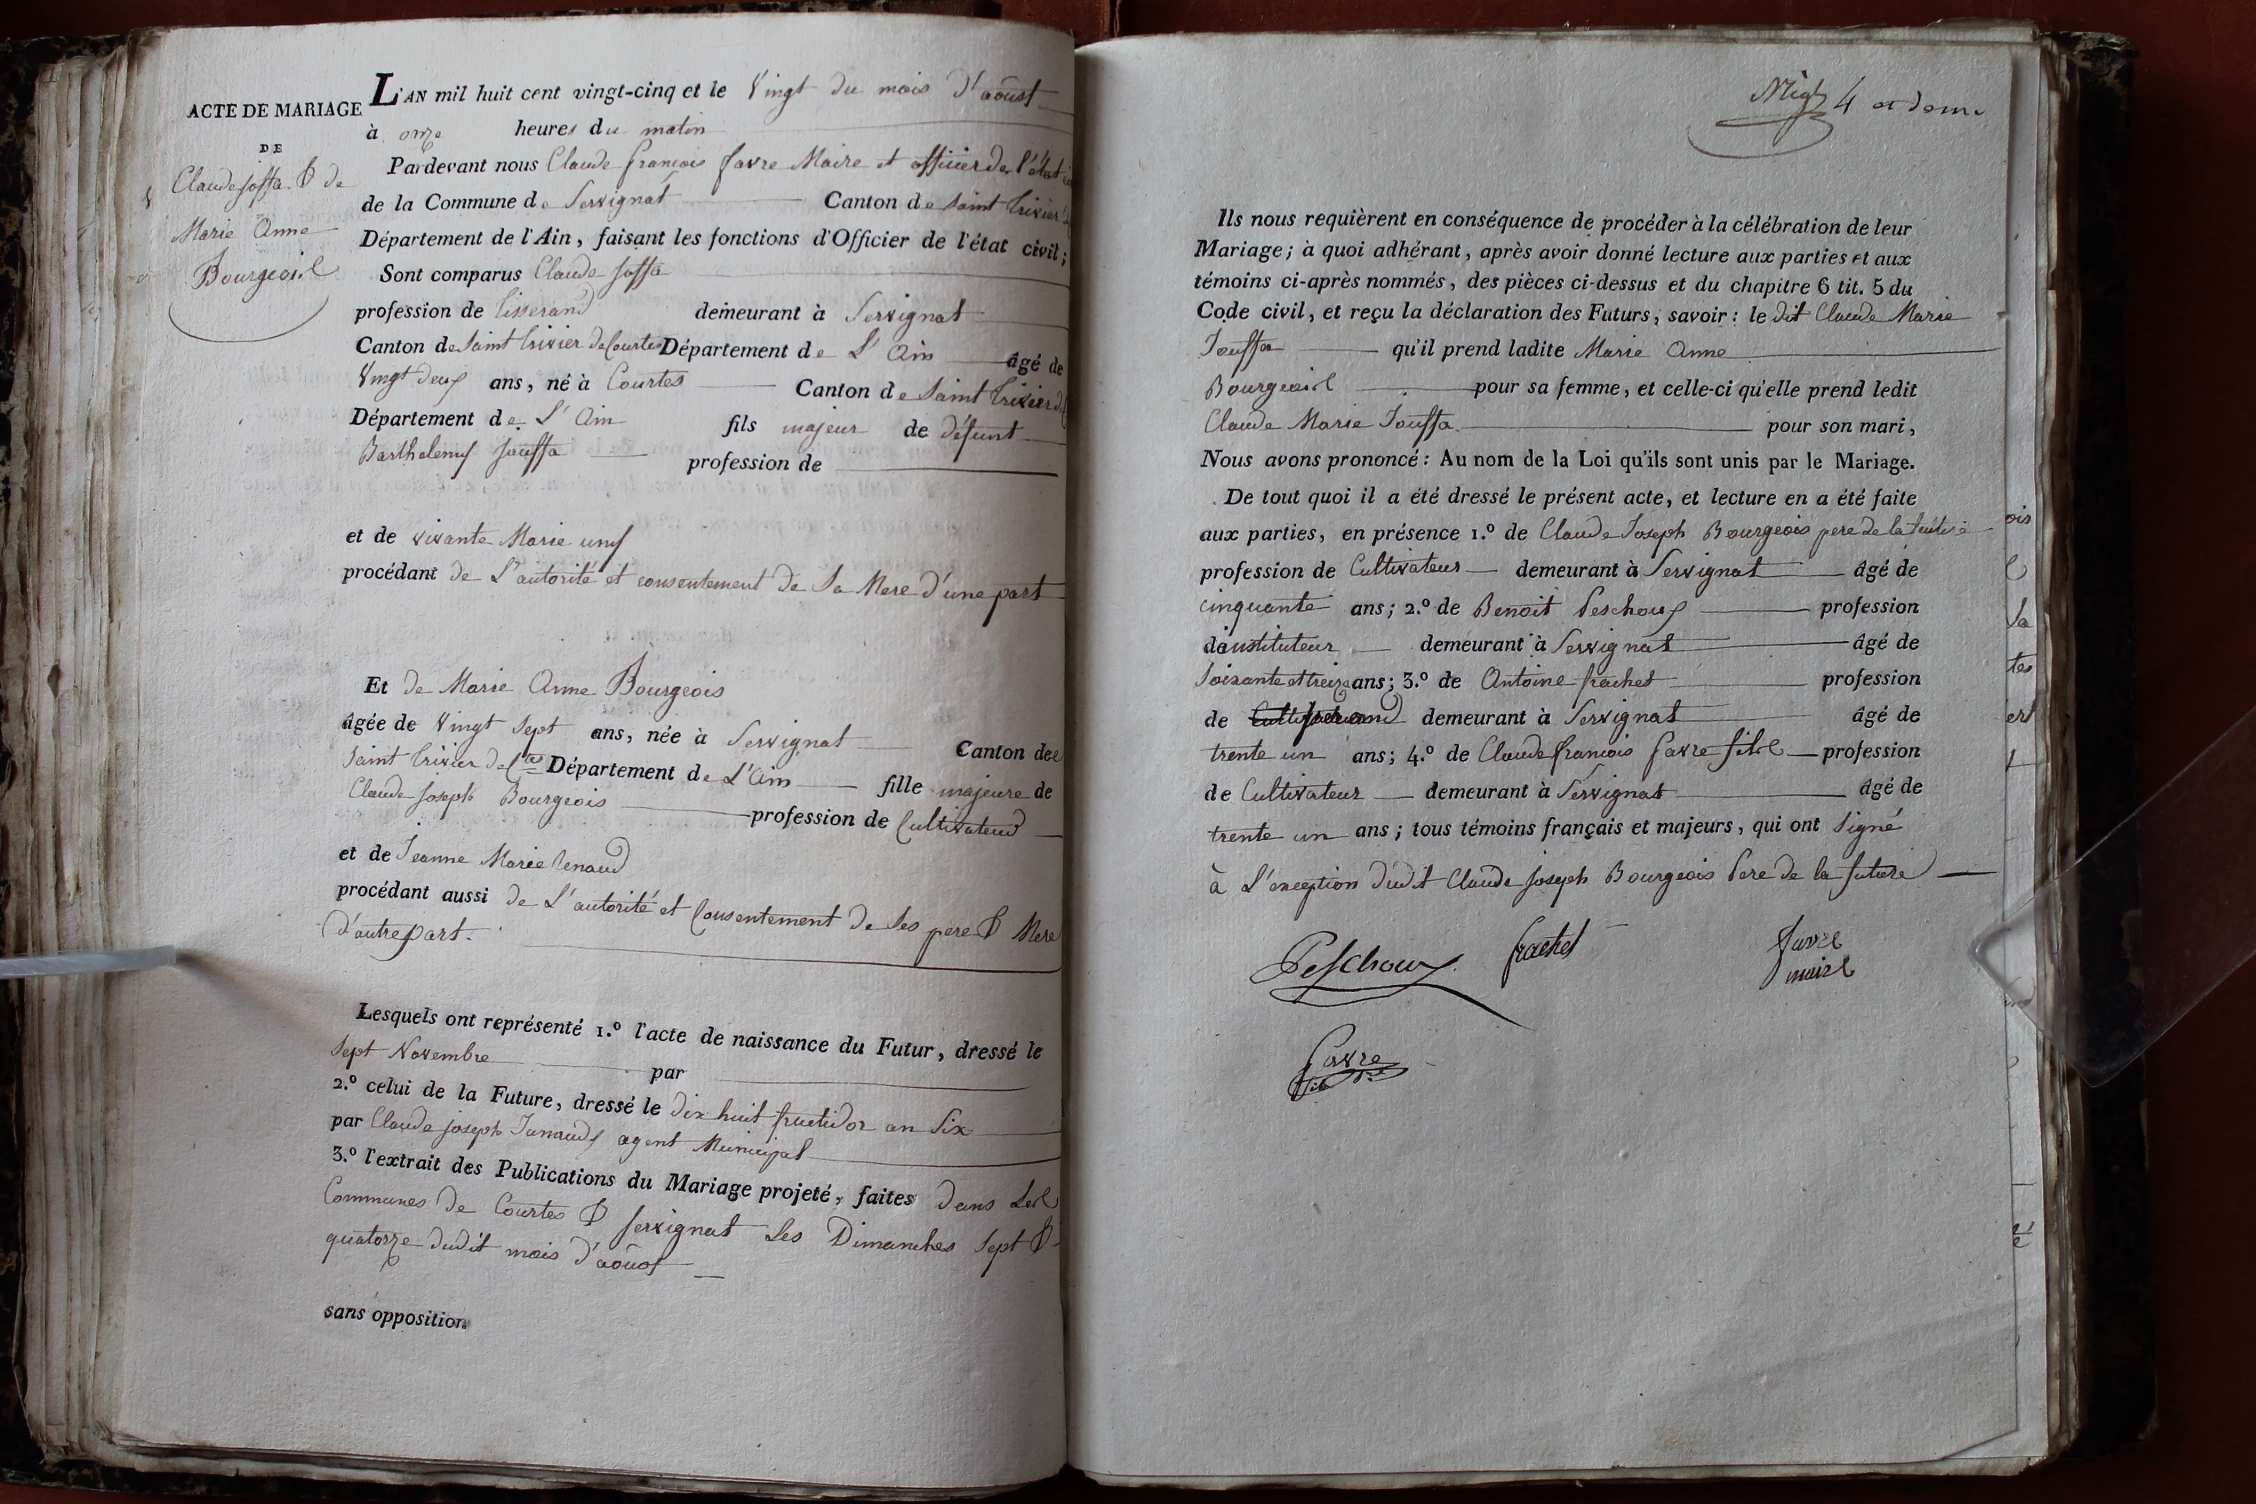 ACTE DE MARIAGE
DE
Claude Joffa & de
Marie Anne
Bourgeois
L'AN mil huit cent vingt-cinq et le Vingt du mois d'aôust
à onze heures du matin
Pardevant nous Claude françois favre Maire et officier de l'état
de la Commune de Servignat Canton de Saint trivier
Département de l'Ain, faisant les fonctions d'Officier de l'état civil;
Sont comparus Claude Joffa
profession de tisserand demeurant à Servignat
Canton de Saint trivier de Courtes Département de L'Ain âgé de
Vingt deux ans, né à Courtes Canton de Saint trivier
Département de L'Ain fils majeur de défunt
Barthelemy Jouffa profession de
et de vivante Marie
procédant de L'autorité et consentement de Sa Mere d'une part
Et de Marie Anne Bourgeois
âgée de Vingt Sept ans, née à Servignat Canton de
Saint trivier de Ctes Département de L'Ain fille majeure de
Claude Joseph Bourgeois profession de Cultivateur
et de Jeanne Marie Renaud
procédant aussi de L'autorité et Consentement de Ses pere & Mere
d'autre part.
Lesquels ont représenté 1.º l'acte de naissance du Futur, dressé le
Sept Novembre par
2.º celui de la Future, dressé le dix huit fructidor an Six
par Claude Joseph agent Municipal
3.º l'extrait des Publications du Mariage projeté, faites dans Les
Communes de Courtes & Servignat Les Dimanches Sept &
quatorze dudit mois d'aôust
sans opposition
4 et
Ils nous requièrent en conséquence de procéder à la célébration de leur
Mariage; à quoi adhérant, après avoir donné lecture aux parties et aux
témoins ci-après nommés, des pièces ci-dessus et du chapitre 6 tit. 5 du
Code civil, et reçu la déclaration des Futurs, savoir: le dit Claude Marie
Jouffa qu'il prend ladite Marie Anne
Bourgeois pour sa femme, et celle-ci qu'elle prend ledit
Claude Marie Jouffa pour son mari,
Nous avons prononcé: Au nom de la Loi qu'ils sont unis par le Mariage.
De tout quoi il a été dressé le présent acte, et lecture en a été faite
aux parties, en présence 1.º de Claude Joseph Bourgeois pere de la future
profession de Cultivateur demeurant à Servignat âgé de
cinquante ans; 2.º de Benoit Peschoux profession
d'instituteur demeurant à Servignat âgé de
Soixante et treize ans; 3.º de Antoine frachet profession
de demeurant à Servignat âgé de
trente un ans; 4.º de Claude françois favre fils profession
de Cultivateur demeurant à Servignat âgé de
trente un ans; tous témoins français et majeurs, qui ont Signé
à L'exception dudit Claude Joseph Bourgeois Pere de la future
Peschoux frachet favre
maire
favre
fils